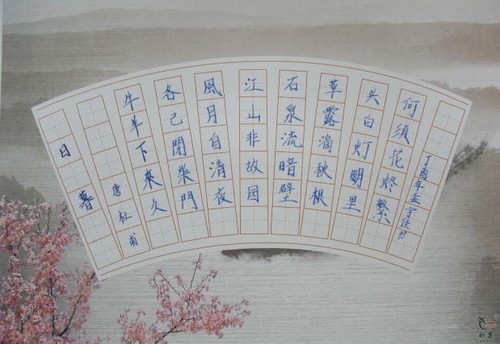 日暮
唐杜甫
牛羊下來久
各已閉柴門
風月自清夜
江山非故园
石泉流暗壁
草露滴秋根
头白灯明里
何須花烬繁
丁酉年